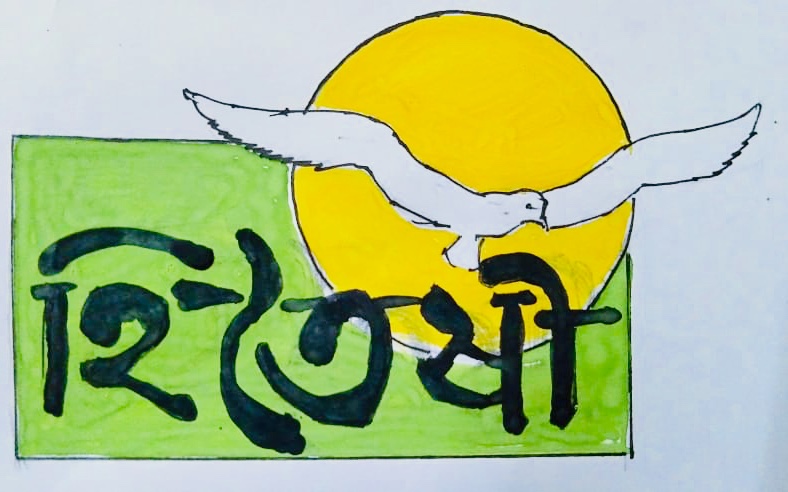 হিতৈষী